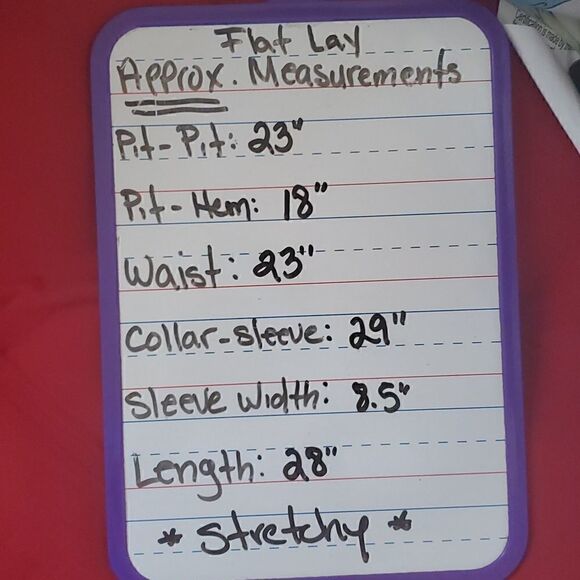 Flat Lay
Approx. Measurements
Pit-Pit: 23"
Pit-Hem: 18"
Waist: 23"
Collar-sleeve: 29"
Sleeve Width: 8.5"
Length: 28"
* Stretchy *